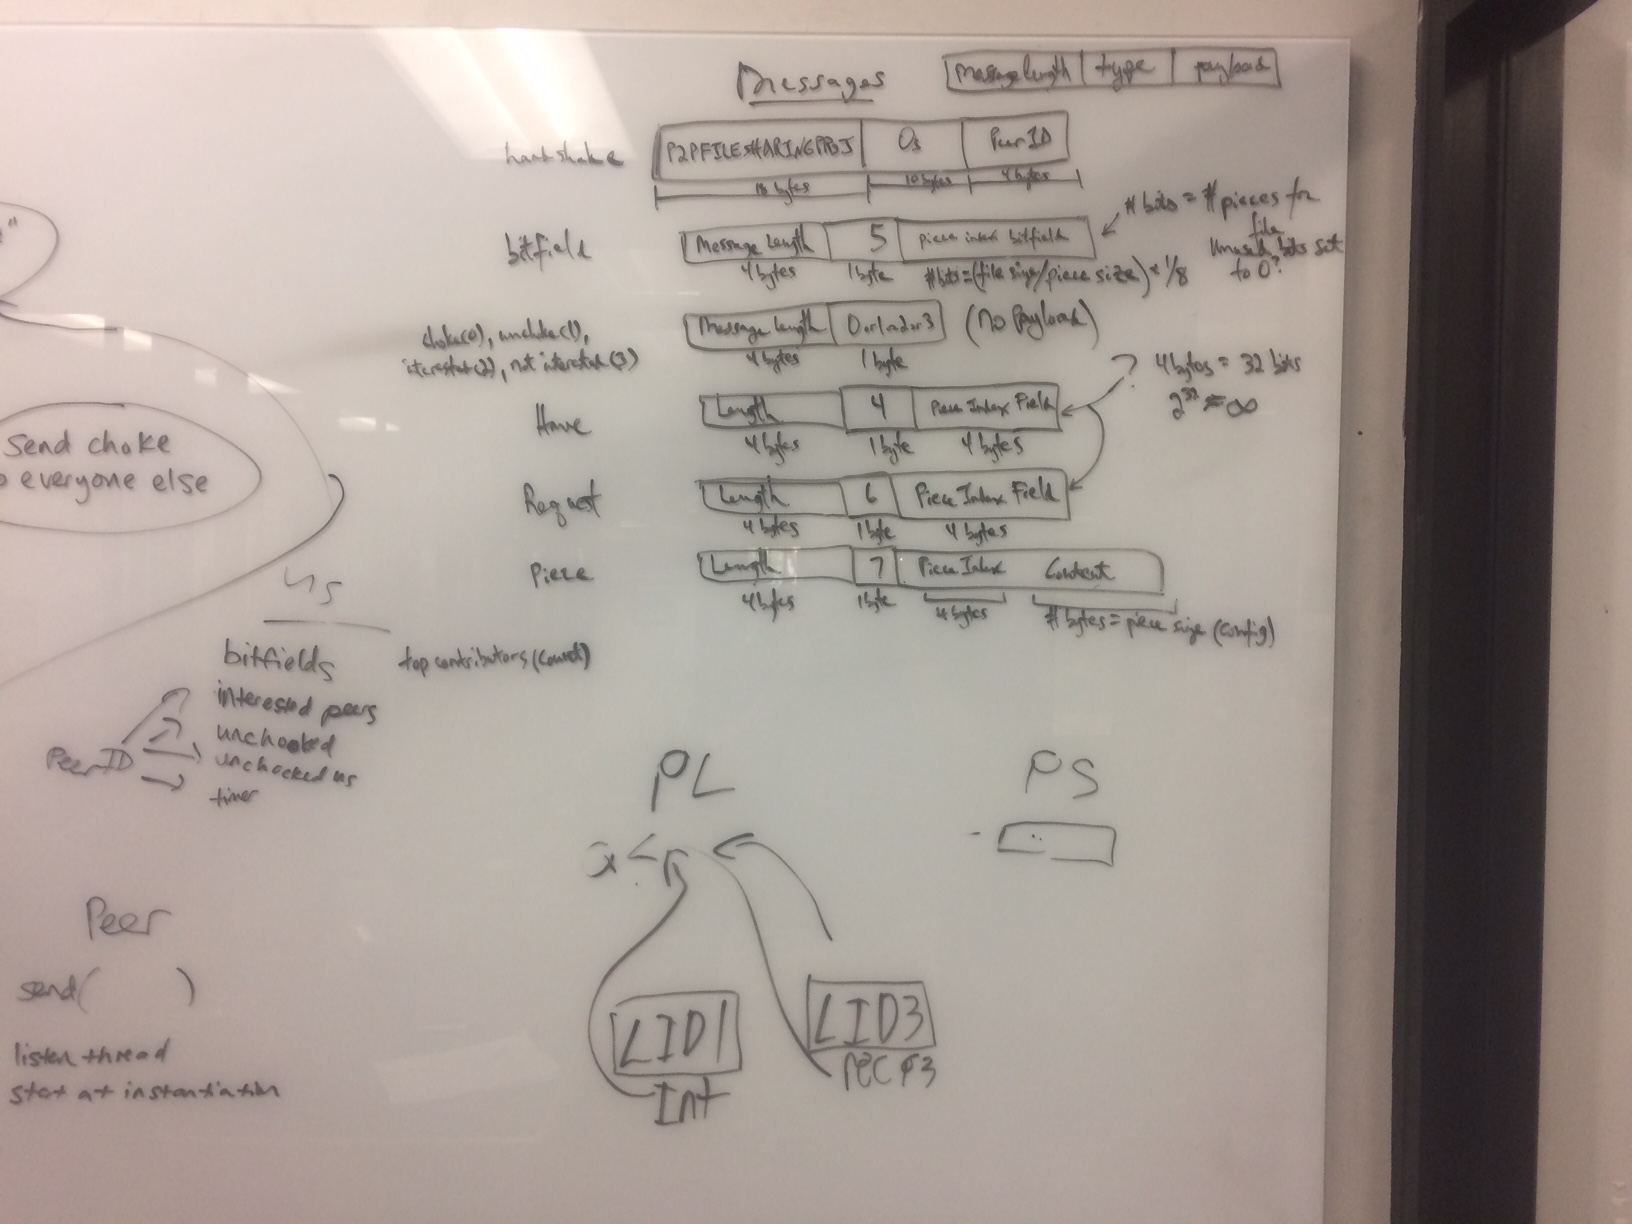 Messages
Message length | type | payload
handshake
P2PFILESHARINGPROJ | 0s | Peer ID
18 bytes 10 bytes 4 bytes
bitfield
Message Length | 5 | piece index bitfield
4 bytes 1 byte #bits = (file size/piece size) * 1/8
# bits = # pieces for
file
Unused bits set
to 0?
choke(0), unchoke(1),
interested(2), not interested(3)
Message Length | 0 or 1 or 2 or 3 (No Payload)
4 bytes 1 byte
Have
Length | 4 | Piece Index Field
4 bytes 1 byte 4 bytes
? 4 bytes = 32 bits
2^32 ≈ ∞
Request
Length | 6 | Piece Index Field
4 bytes 1 byte 4 bytes
Piece
Length | 7 | Piece Index Content
4 bytes 1 byte 4 bytes # bytes = piece size (config)
Send choke
o everyone else
us
bitfields top contributors (count)
interested peers
unchooked
unchocked us
timer
Peer ID
PL PS
Peer
send( )
listen thread
start at instantiation
LID1
Int
LID3